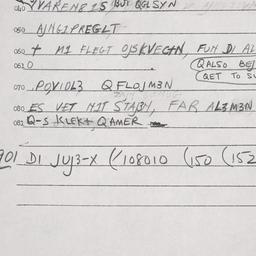 040 YVAREN815 BUT QGLSYN
050 AJNG1PREGLT
060 + M1 FLEGT OJSKVECTN, FUN DI AL
0610 (QALSO BEJ
(GET TO SU
070 POVIOL3 Q FLOJM3N
080 ES VET NIT STABN, FAR AL3M3N
082 Q-S KLEKT QAMER
901 DI JUJ3-X (108010 (150 (152